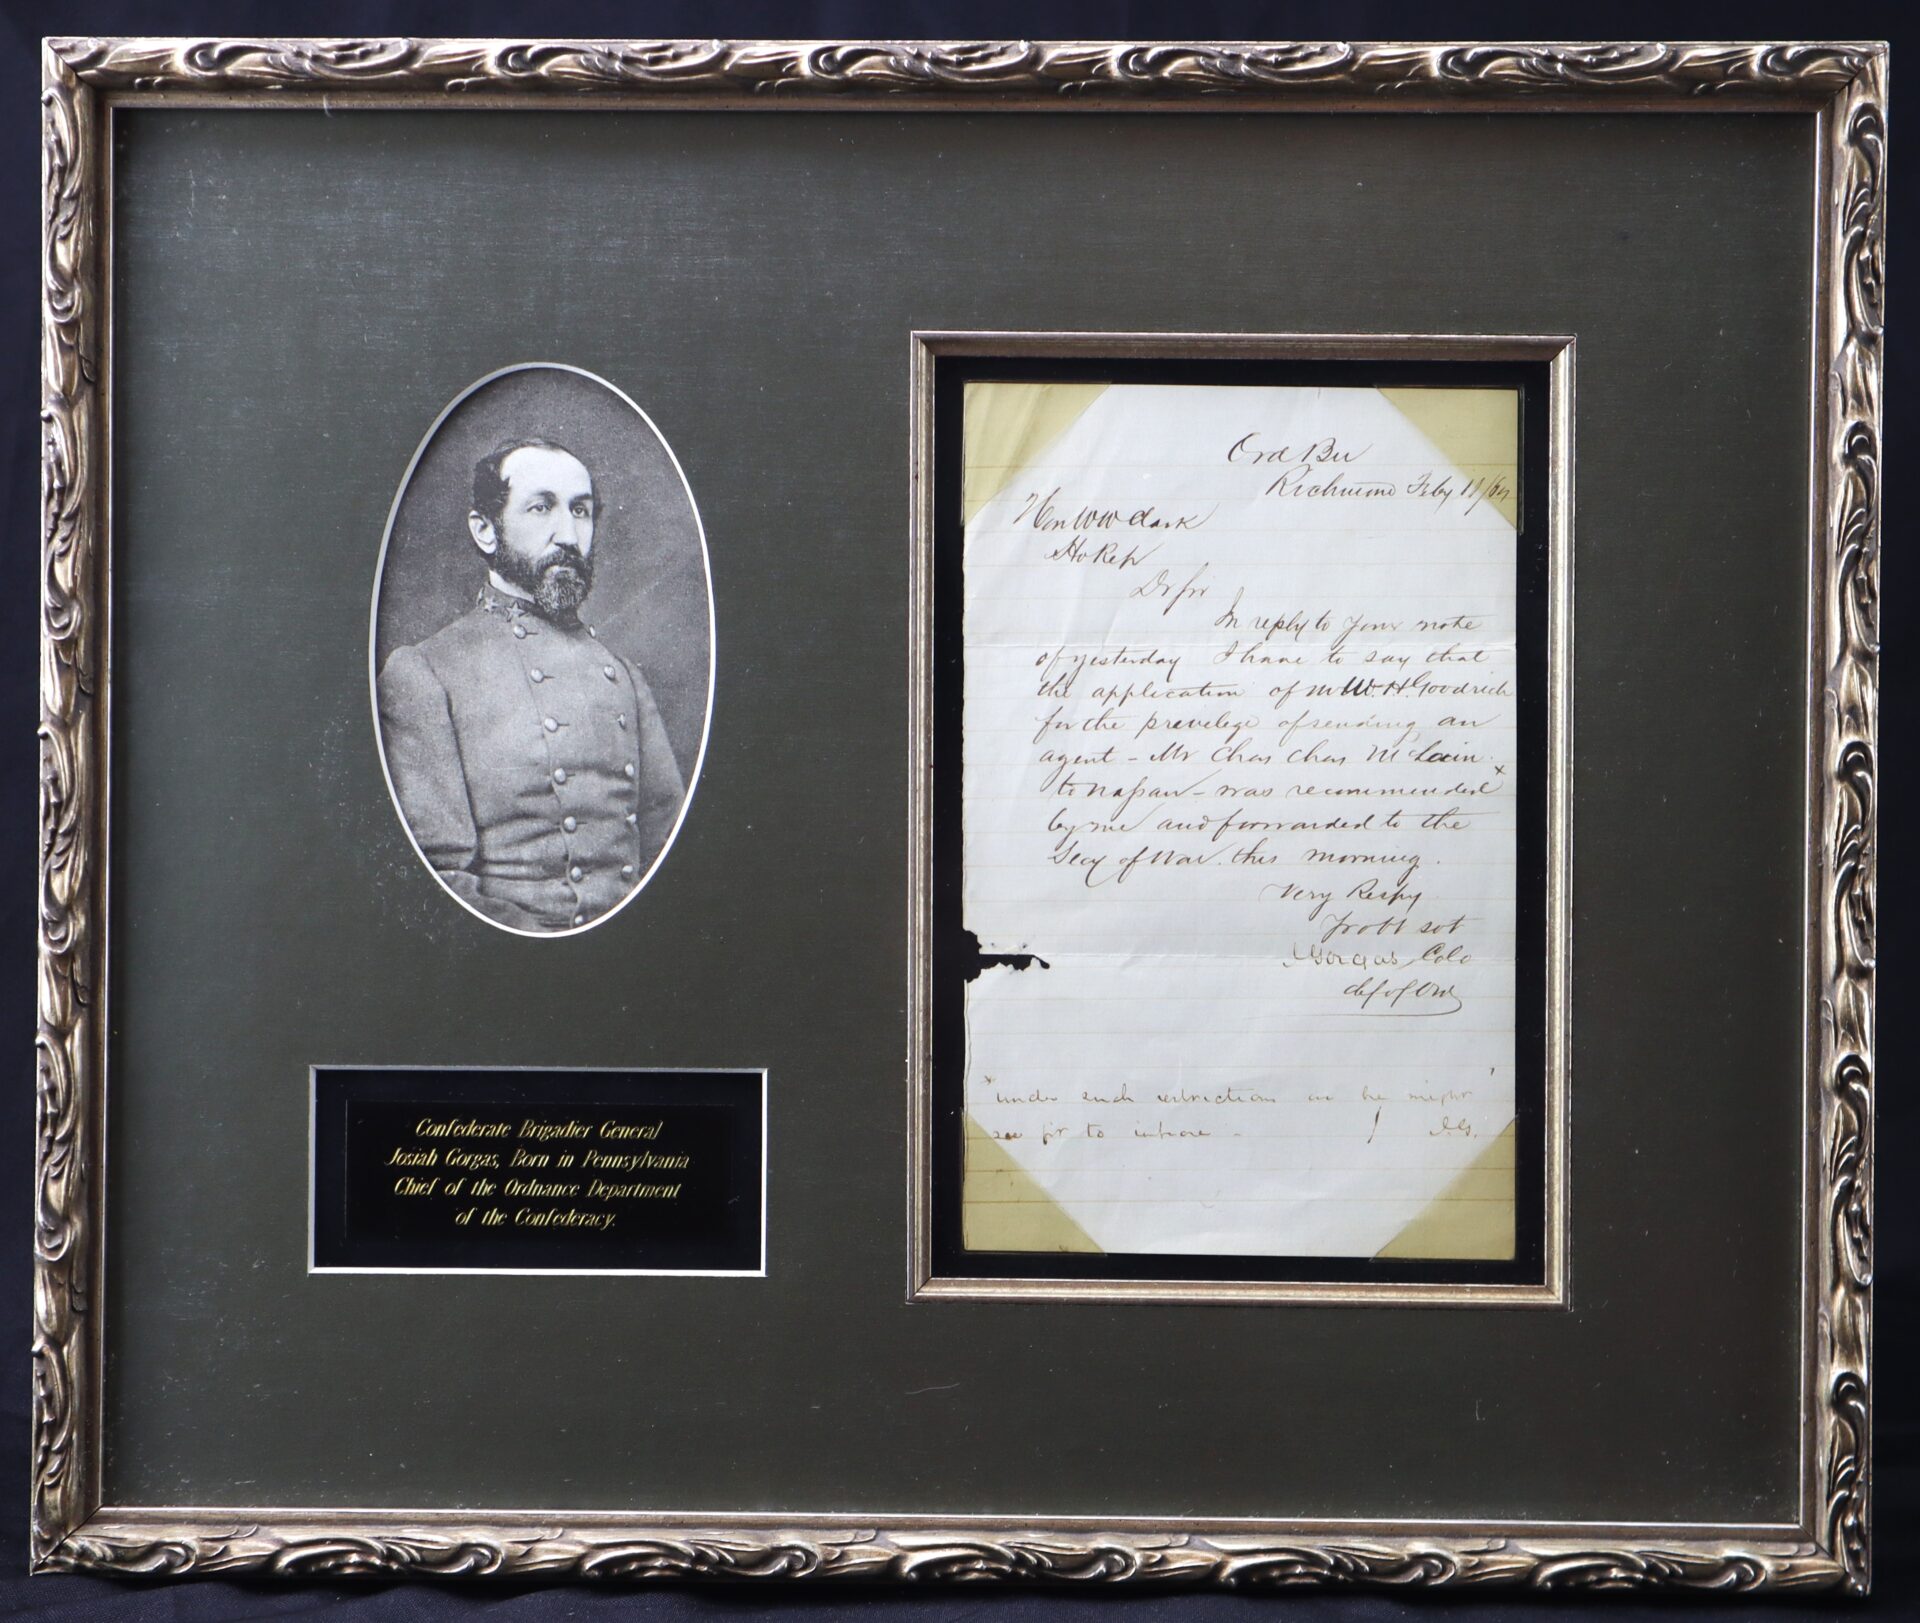 Confederate Brigadier General
Josiah Gorgas, Born in Pennsylvania
Chief of the Ordnance Department
of the Confederacy.
Ord Bu
Richmond Feby 11/64
Hon W W Clark
Ho Rep
Dr Sir
In reply to your note
of yesterday I have to say that
the application of Mr W. H. Goodrich
for the previlege of sending an
agent - Mr Chas Chas McLain
to Nassau - was recommended x
by me and forwarded to the
Secy of War. this morning.
Very Respy
Yr obt svt
J Gorgas Colo
Chf of Ord
x under such restrictions as he might
see fit to impose - J.G.